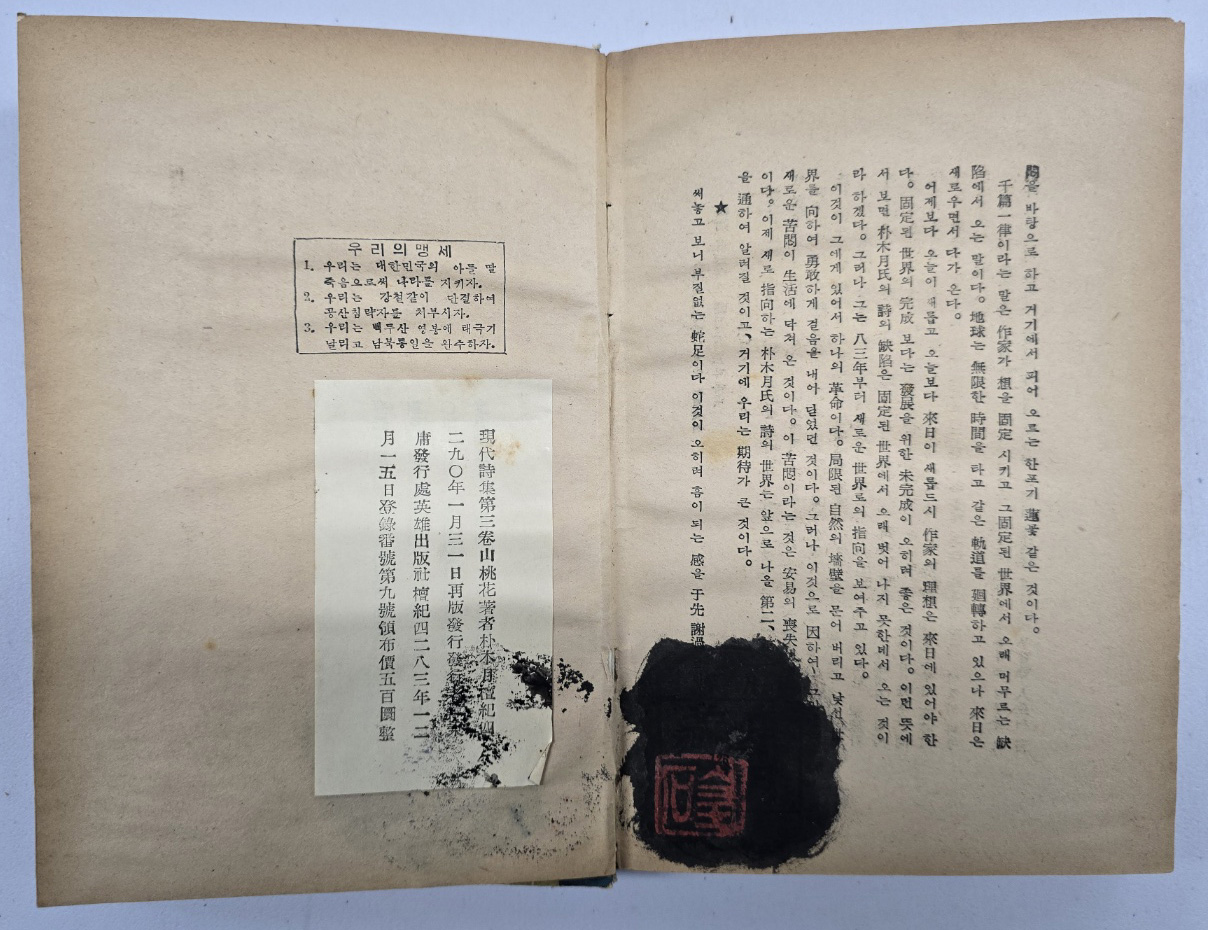 悶을 바탕으로 하고 거기에서 피어 오르는 한포기 蓮꽃 같은 것이다。
千篇一律이라는 말은 作家가 想을 固定 시키고 그 固定된 世界에서 오래 머무르는 缺
陷에서 오는 말이다。地球는 無限한 時間을 타고 같은 軌道를 廻轉하고 있으나 來日은
새로우면서 다가 온다。
어제보다 오늘이 새롭고 오늘보다 來日이 새롭드시 作家의 理想은 來日에 있어야 한
다。固定된 世界의 完成 보다는 發展을 위한 未完成이 오히려 좋은 것이다。이런 뜻에
서 보면 朴木月氏의 詩의 缺陷은 固定된 世界에서 오래 벗어 나지 못한데서 오는 것이
라 하겠다。그러나 그는 八三年부터 새로운 世界로의 指向을 보여주고 있다。
이것이 그에게 있어서 하나의 革命이다。局限된 自然의 墻壁을 문어 버리고 낯선
界를 向하여 勇敢하게 걸음을 내어 딛었던 것이다。그러나 이것으로 因하여 그
새로운 苦悶이 生活에 닥쳐 온 것이다。이 苦悶이라는 것은 安易의 喪失
이다。이제 새로 指向하는 朴木月氏의 詩의 世界는 앞으로 나올 第二、
을 通하여 알려질 것이고、거기에 우리는 期待가 큰 것이다。
★
써놓고 보니 부질없는 蛇足이다 이것이 오히려 흠이 되는 感을 于先 謝過
우리의 맹세
1. 우리는 대한민국의 아들 딸
죽음으로써 나라를 지키자.
2. 우리는 강철같이 단결하여
공산침략자를 처부시자.
3. 우리는 백두산 영봉에 태극기
날리고 남북통일을 완수하자.
現代詩集第三卷山桃花著者朴木月檀紀四
二九〇年一月三一日再版發行發行
庸發行處英雄出版社檀紀四二八三年一二
月一五日登錄番號第九號領布價五百圜整